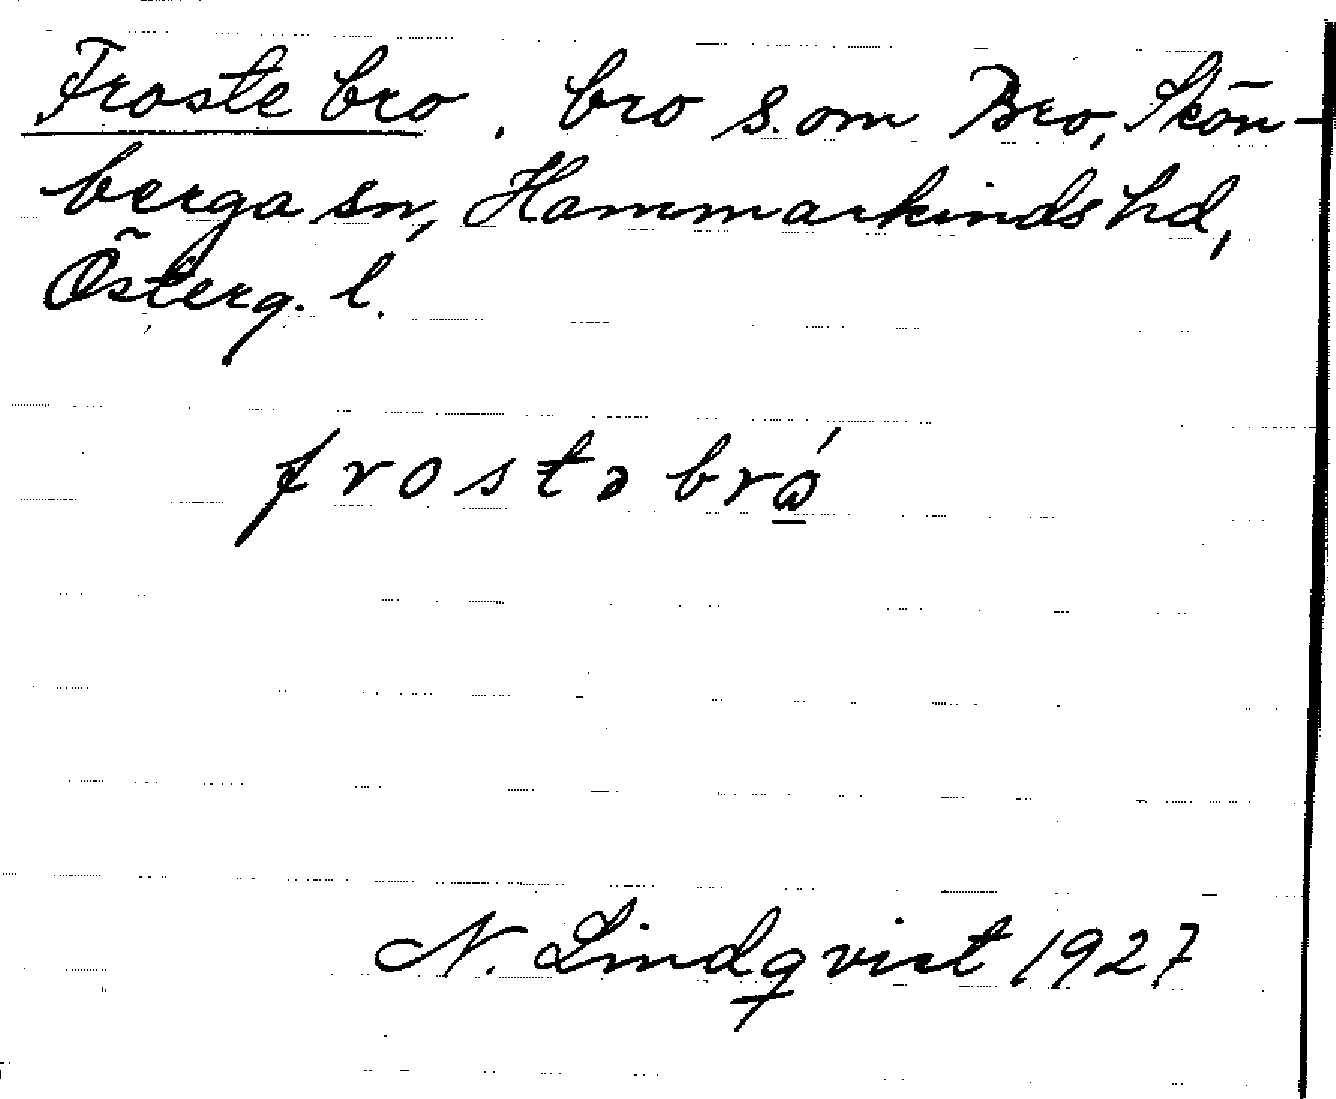 Froste bro, bro s. om Bro, Skön-
berga sn, Hammarkinds hd,
Österg. l.
frostəbrǻ
N. Lindqvist 1927